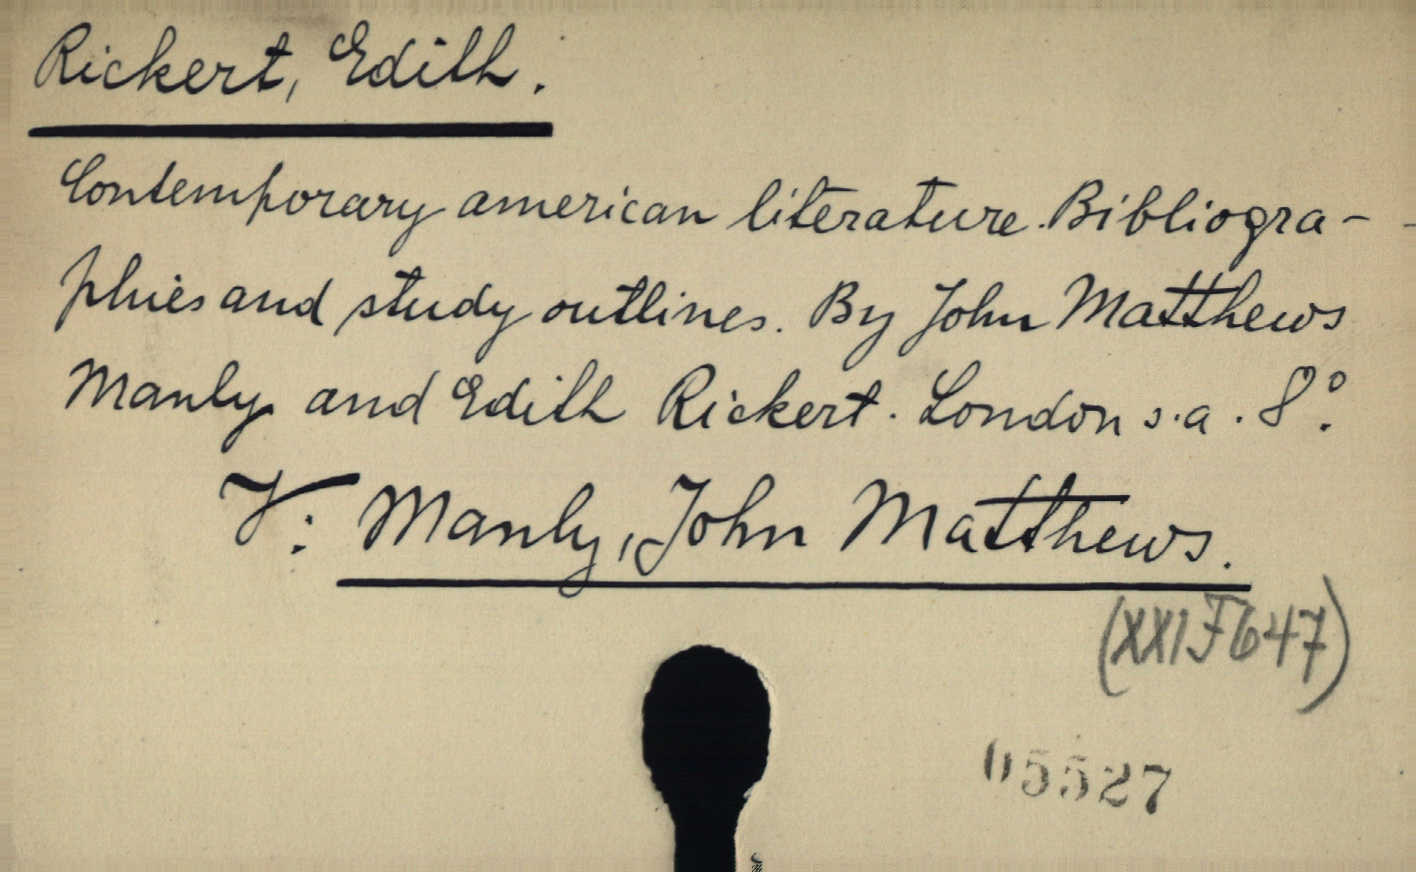 Rickert, Edith.
Contemporary american literature. Bibliogra-
phies and study outlines. By John Matthews
Manly and Edith Rickert. London s.a. 8°.
V: Manly, John Matthews.
(XXI F 647)
05527